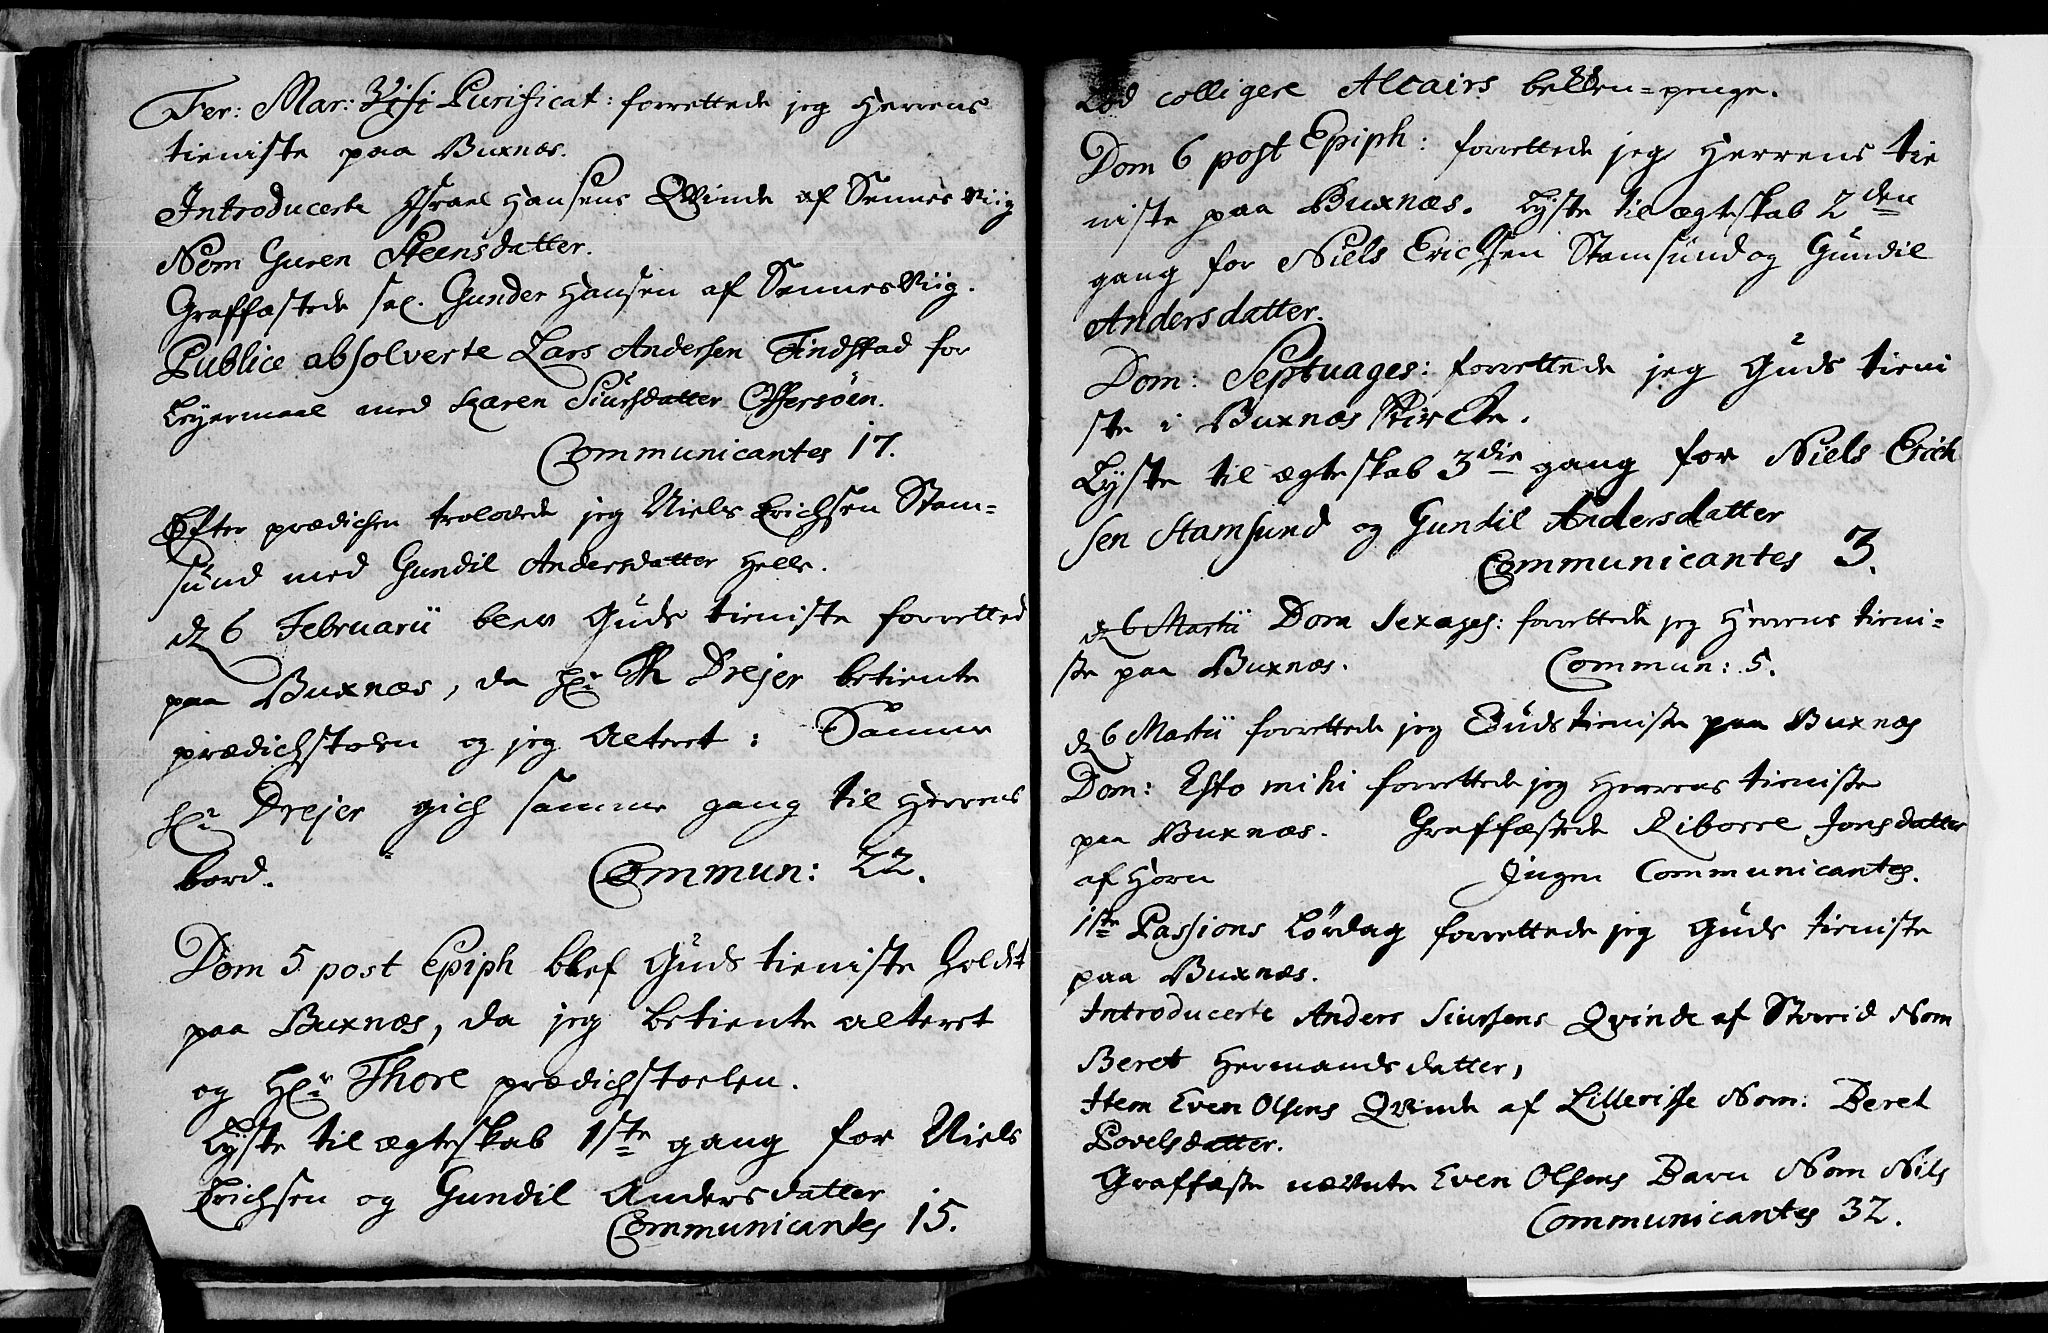 Fer: Mar: Visi Purificat: forrettede jeg Herrens
tieniste paa Buxnæs.
Introducerte Israel Hansens Qvinde af SennesViig
Nom Guren Steensdatter.
Graffæstede sal. Gunder Hansen af SennesViig.
Publice absolverte Lars Andersen Findstad for
Leyermaal med Karen Siursdatter Offersøen.
Communicantes 17.
Efter prædichen trolovede jeg Niels Erichsen Stam=
sund med Gundil Andersdatter Helle.
d 6 Februarii blev Guds tieniste forretted
paa Buxnæs, da Hr Th Drejer betiente
prædichstolen og jeg Alteret: Samme
Hr Drejer gich samme gang til Herrens
bord. Commun: 22.
Dom 5 post Epiph blef Guds tieniste holdt
paa Buxnæs, da jeg betiente alteret
og Hr Thore prædichstoelen.
Lyste til ægteskab 1ste gang for Niels
Erichsen og Gundil Andersdatter
Communicantes 15.
Lod colligere Alcairs bekken=penge.
Dom 6 post Epiph: forrettede jeg Herrens tie
niste paa Buxnæs. Lyste til ægteskab 2den
gang for Niels Erichsen Stamsund og Gundil
Andersdatter.
Dom: Septuages: forrettede jeg Guds tieni
ste i Buxnæs Kircke.
Lyste til ægteskab 3die gang for Niels Erich
sen Stamsund og Gundil Andersdatter
Communicantes 3.
d 6 Martii Dom Sexages: forrettede jeg Herrens tieni=
ste paa Buxnæs. Commun: 5.
d 6 Martii forrettede jeg Guds tieniste paa Buxnæs
Dom: Esto mihi forrettede jeg Herrens tieniste
paa Buxnæs. Graffæstede Riborre Jonsdatter
af Horn Ingen Communicantes.
1ste Passions Lørdag forrettede jeg Guds tieniste
paa Buxnæs.
Introducerte Anders Siursens Qvinde af Storeid Nom
Beret Hermandsdatter,
Item Even Olsens Qvinde af Lilleriise Nom: Beret
Povelsdatter.
Graffæste nævnte Even Olsens Barn Nom Nils
Communicantes 32.